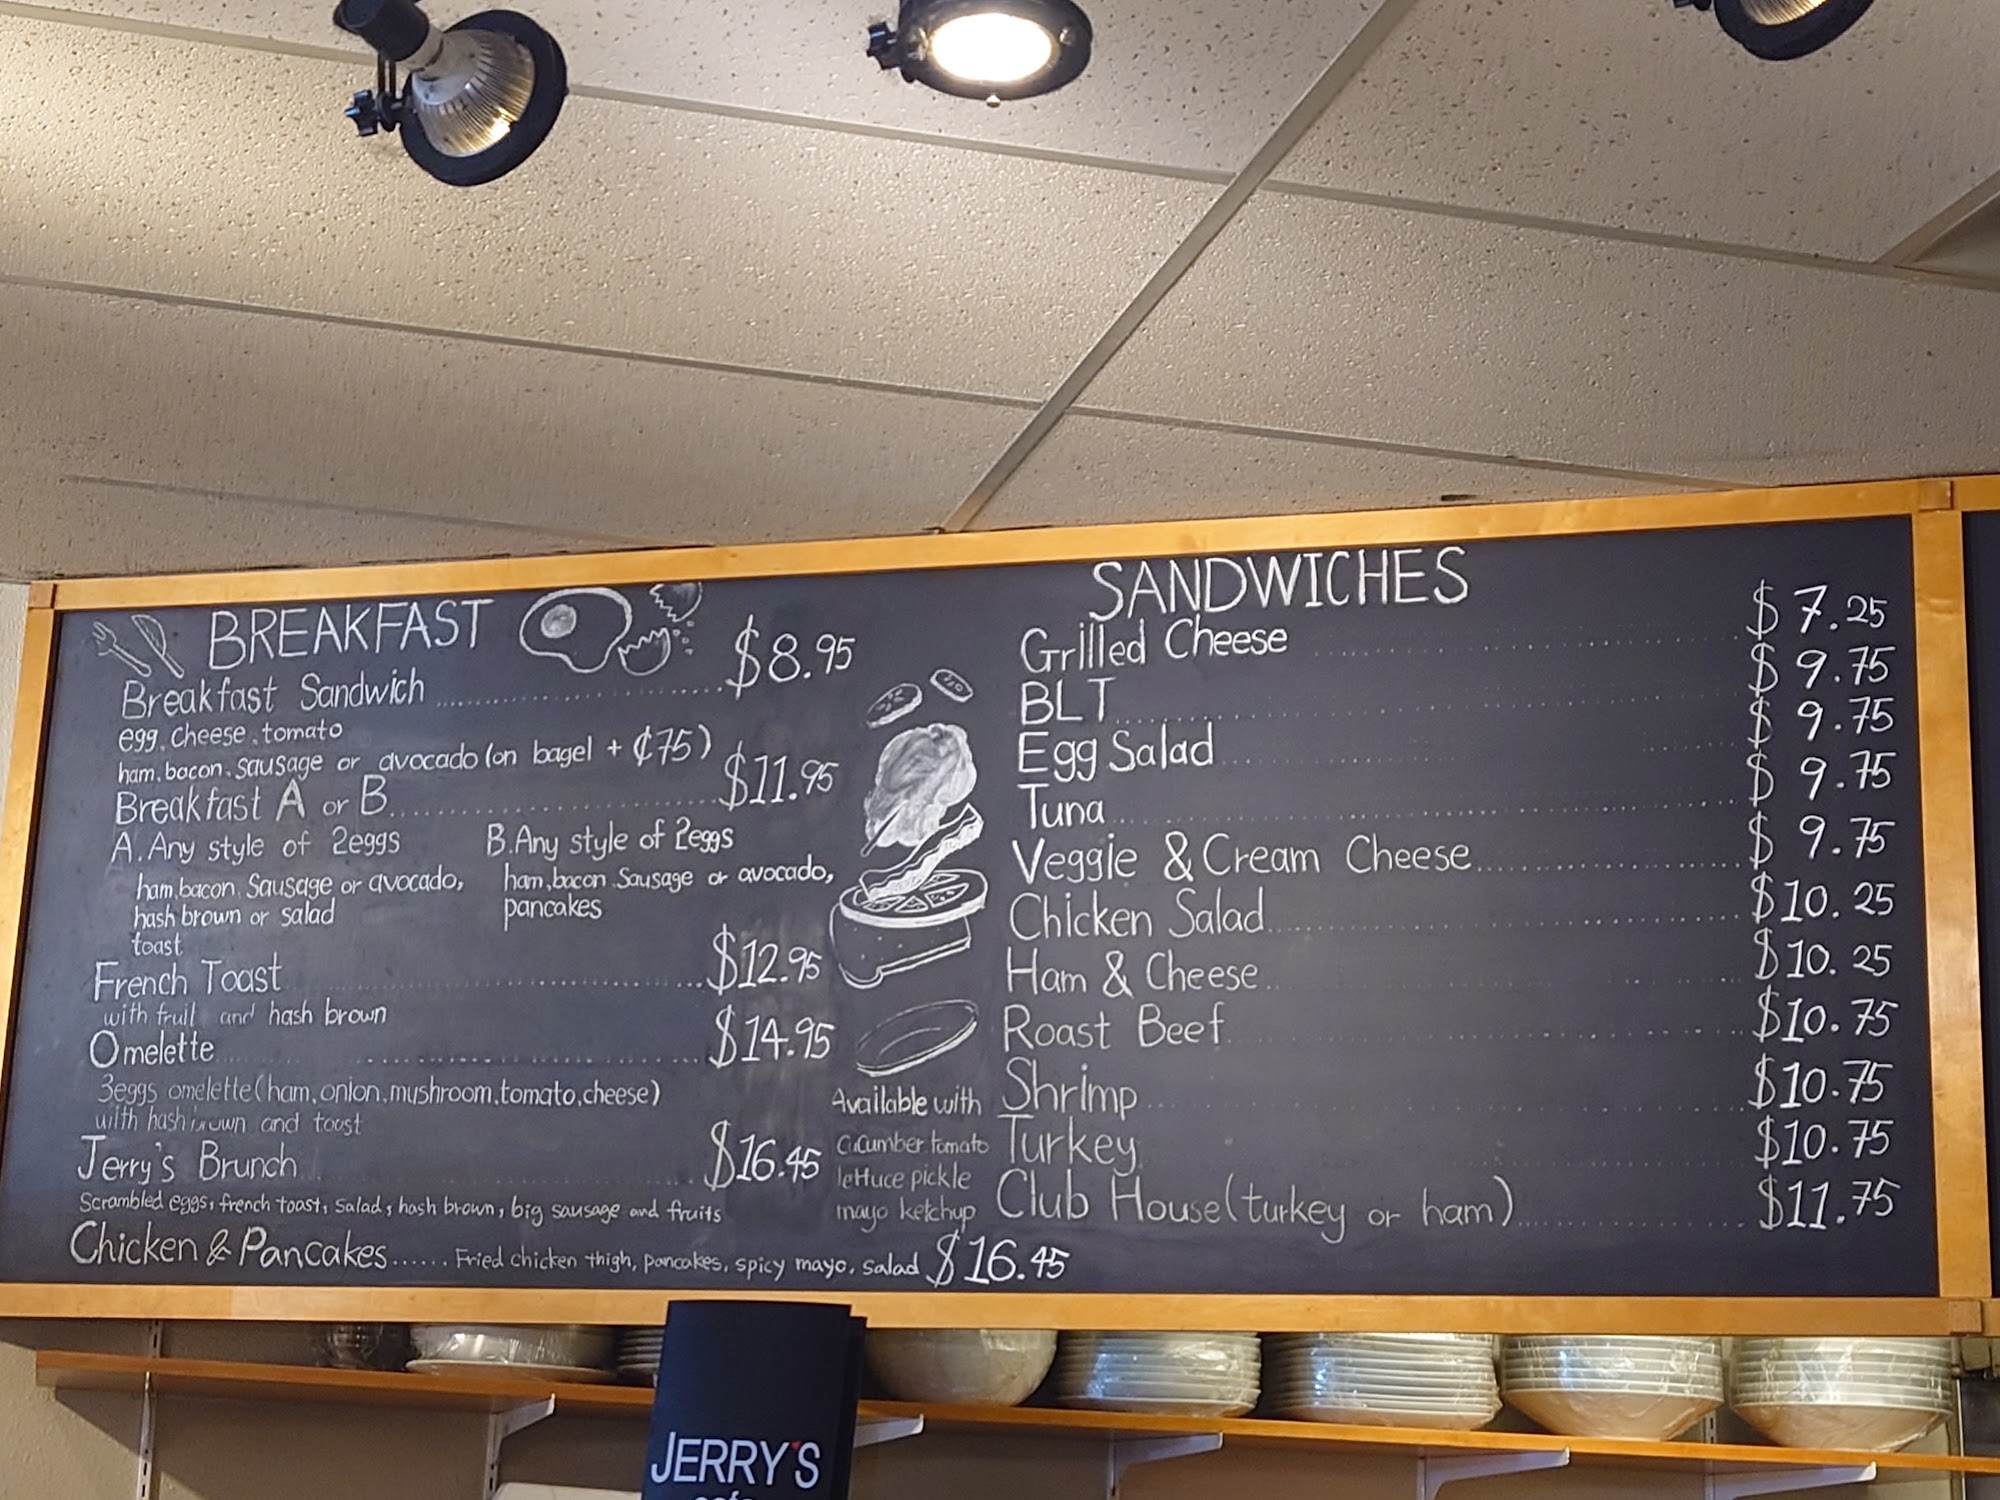 BREAKFAST
Breakfast Sandwich .......... $8.95
egg, cheese, tomato
ham, bacon, sausage or avocado (on bagel + ¢75)
Breakfast A or B .......... $11.95
A. Any style of 2eggs
ham, bacon, sausage or avocado,
hash brown or salad
toast
B. Any style of 2eggs
ham, bacon, sausage or avocado,
pancakes
French Toast .......... $12.95
with fruit and hash brown
Omelette .......... $14.95
3eggs omelette (ham, onion, mushroom, tomato, cheese)
with hash brown and toast
Jerry's Brunch .......... $16.45
Scrambled eggs, french toast, salad, hash brown, big sausage and fruits
Chicken & Pancakes ...... Fried chicken thigh, pancakes, spicy mayo, salad $16.45
Available with
cucumber tomato
lettuce pickle
mayo ketchup
SANDWICHES
Grilled Cheese .......... $7.25
BLT .......... $9.75
Egg Salad .......... $9.75
Tuna .......... $9.75
Veggie & Cream Cheese .......... $9.75
Chicken Salad .......... $10.25
Ham & Cheese .......... $10.25
Roast Beef .......... $10.75
Shrimp .......... $10.75
Turkey .......... $10.75
Club House (turkey or ham) .......... $11.75
JERRY'S
cafe